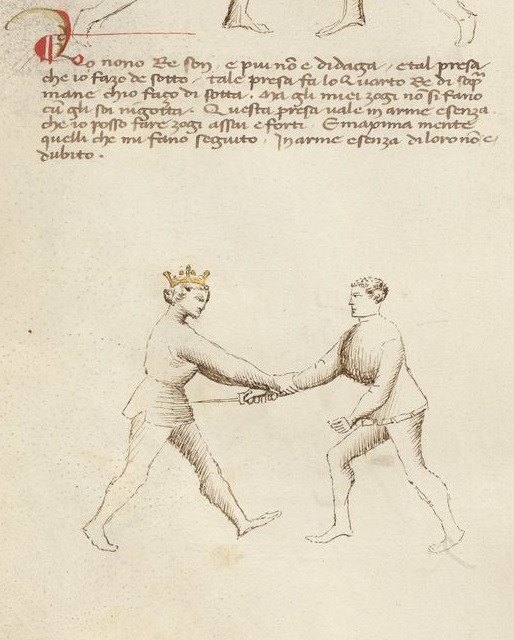 Lo nono Re son, e piu nō e di daga, e tal presa
che io fazo de sotto, tale presa fa lo quarto Re di sopra
mane, chio faço di sotta. Ma gli miei zogi nō si fano
cū gli soi nigotta. Questa presa vale in arme e senza
che io posso fare zogi assai e forti. E maxima mente
quelli che mi fano seguito, In arme e senza di loro nō e
dubito.